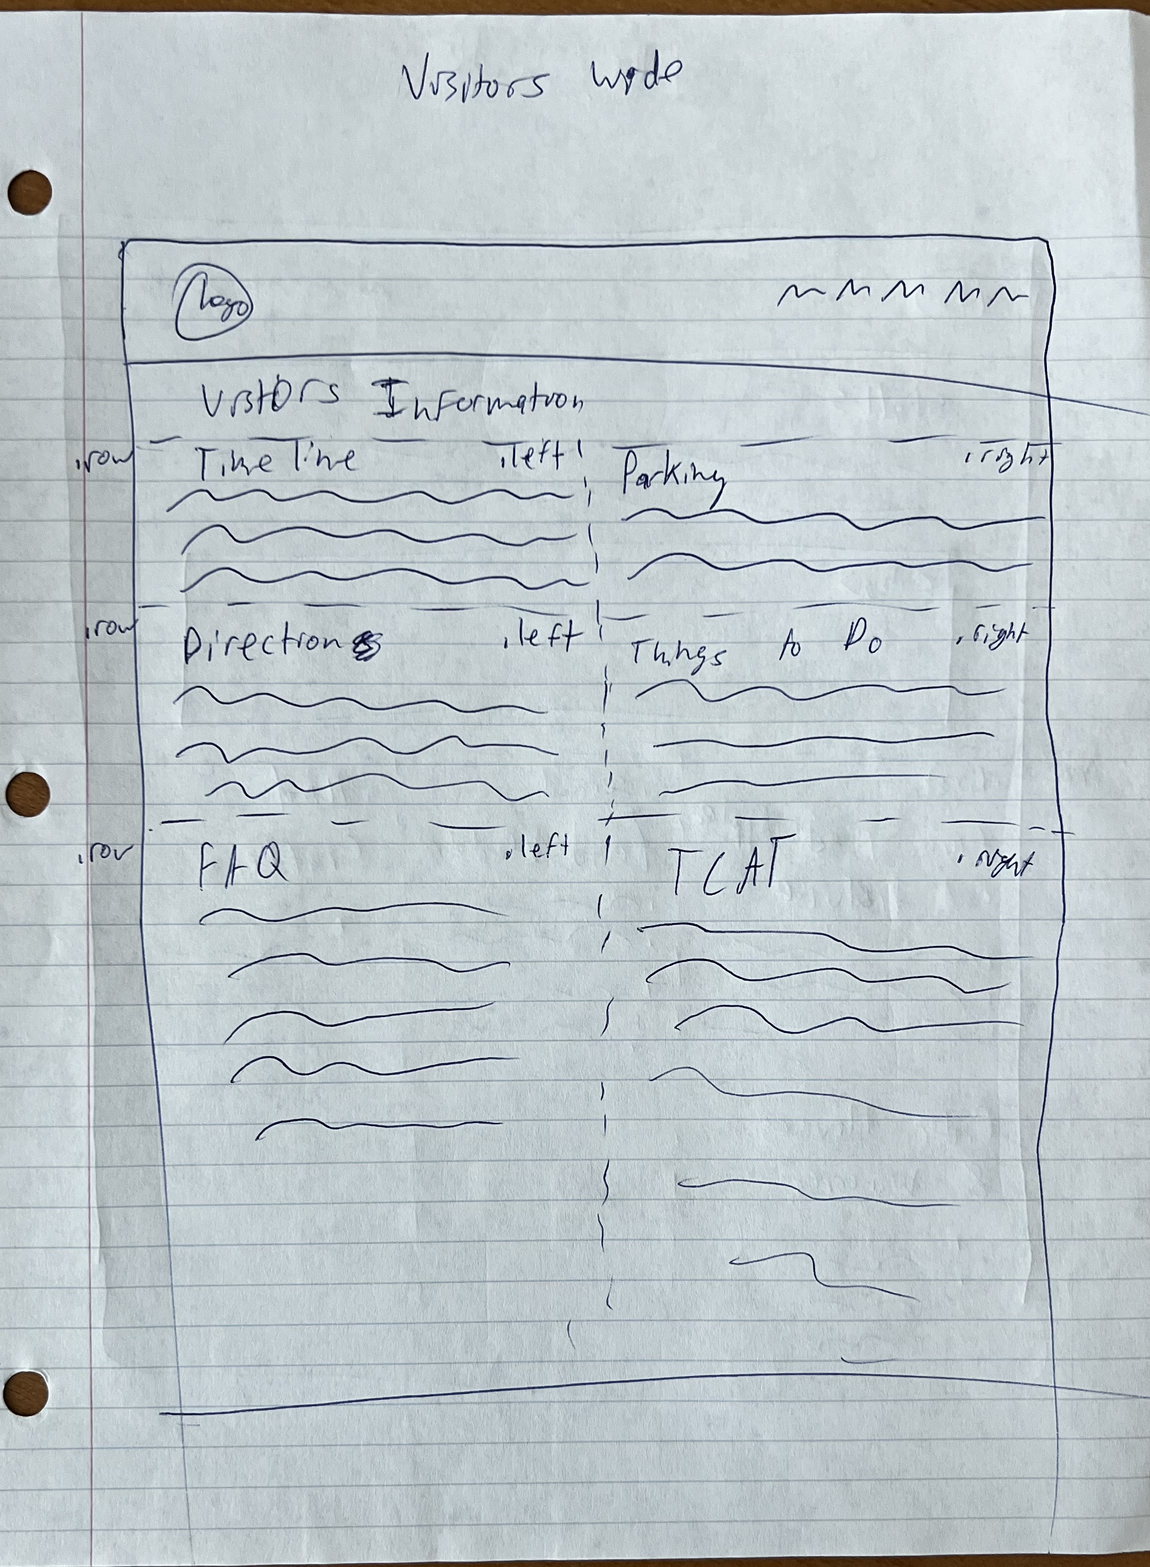 Visitors wide
logo
Visitors Information
.row Time line .left Parking .right
.row Directions .left Things to Do .right
.row FAQ .left TCAT .right